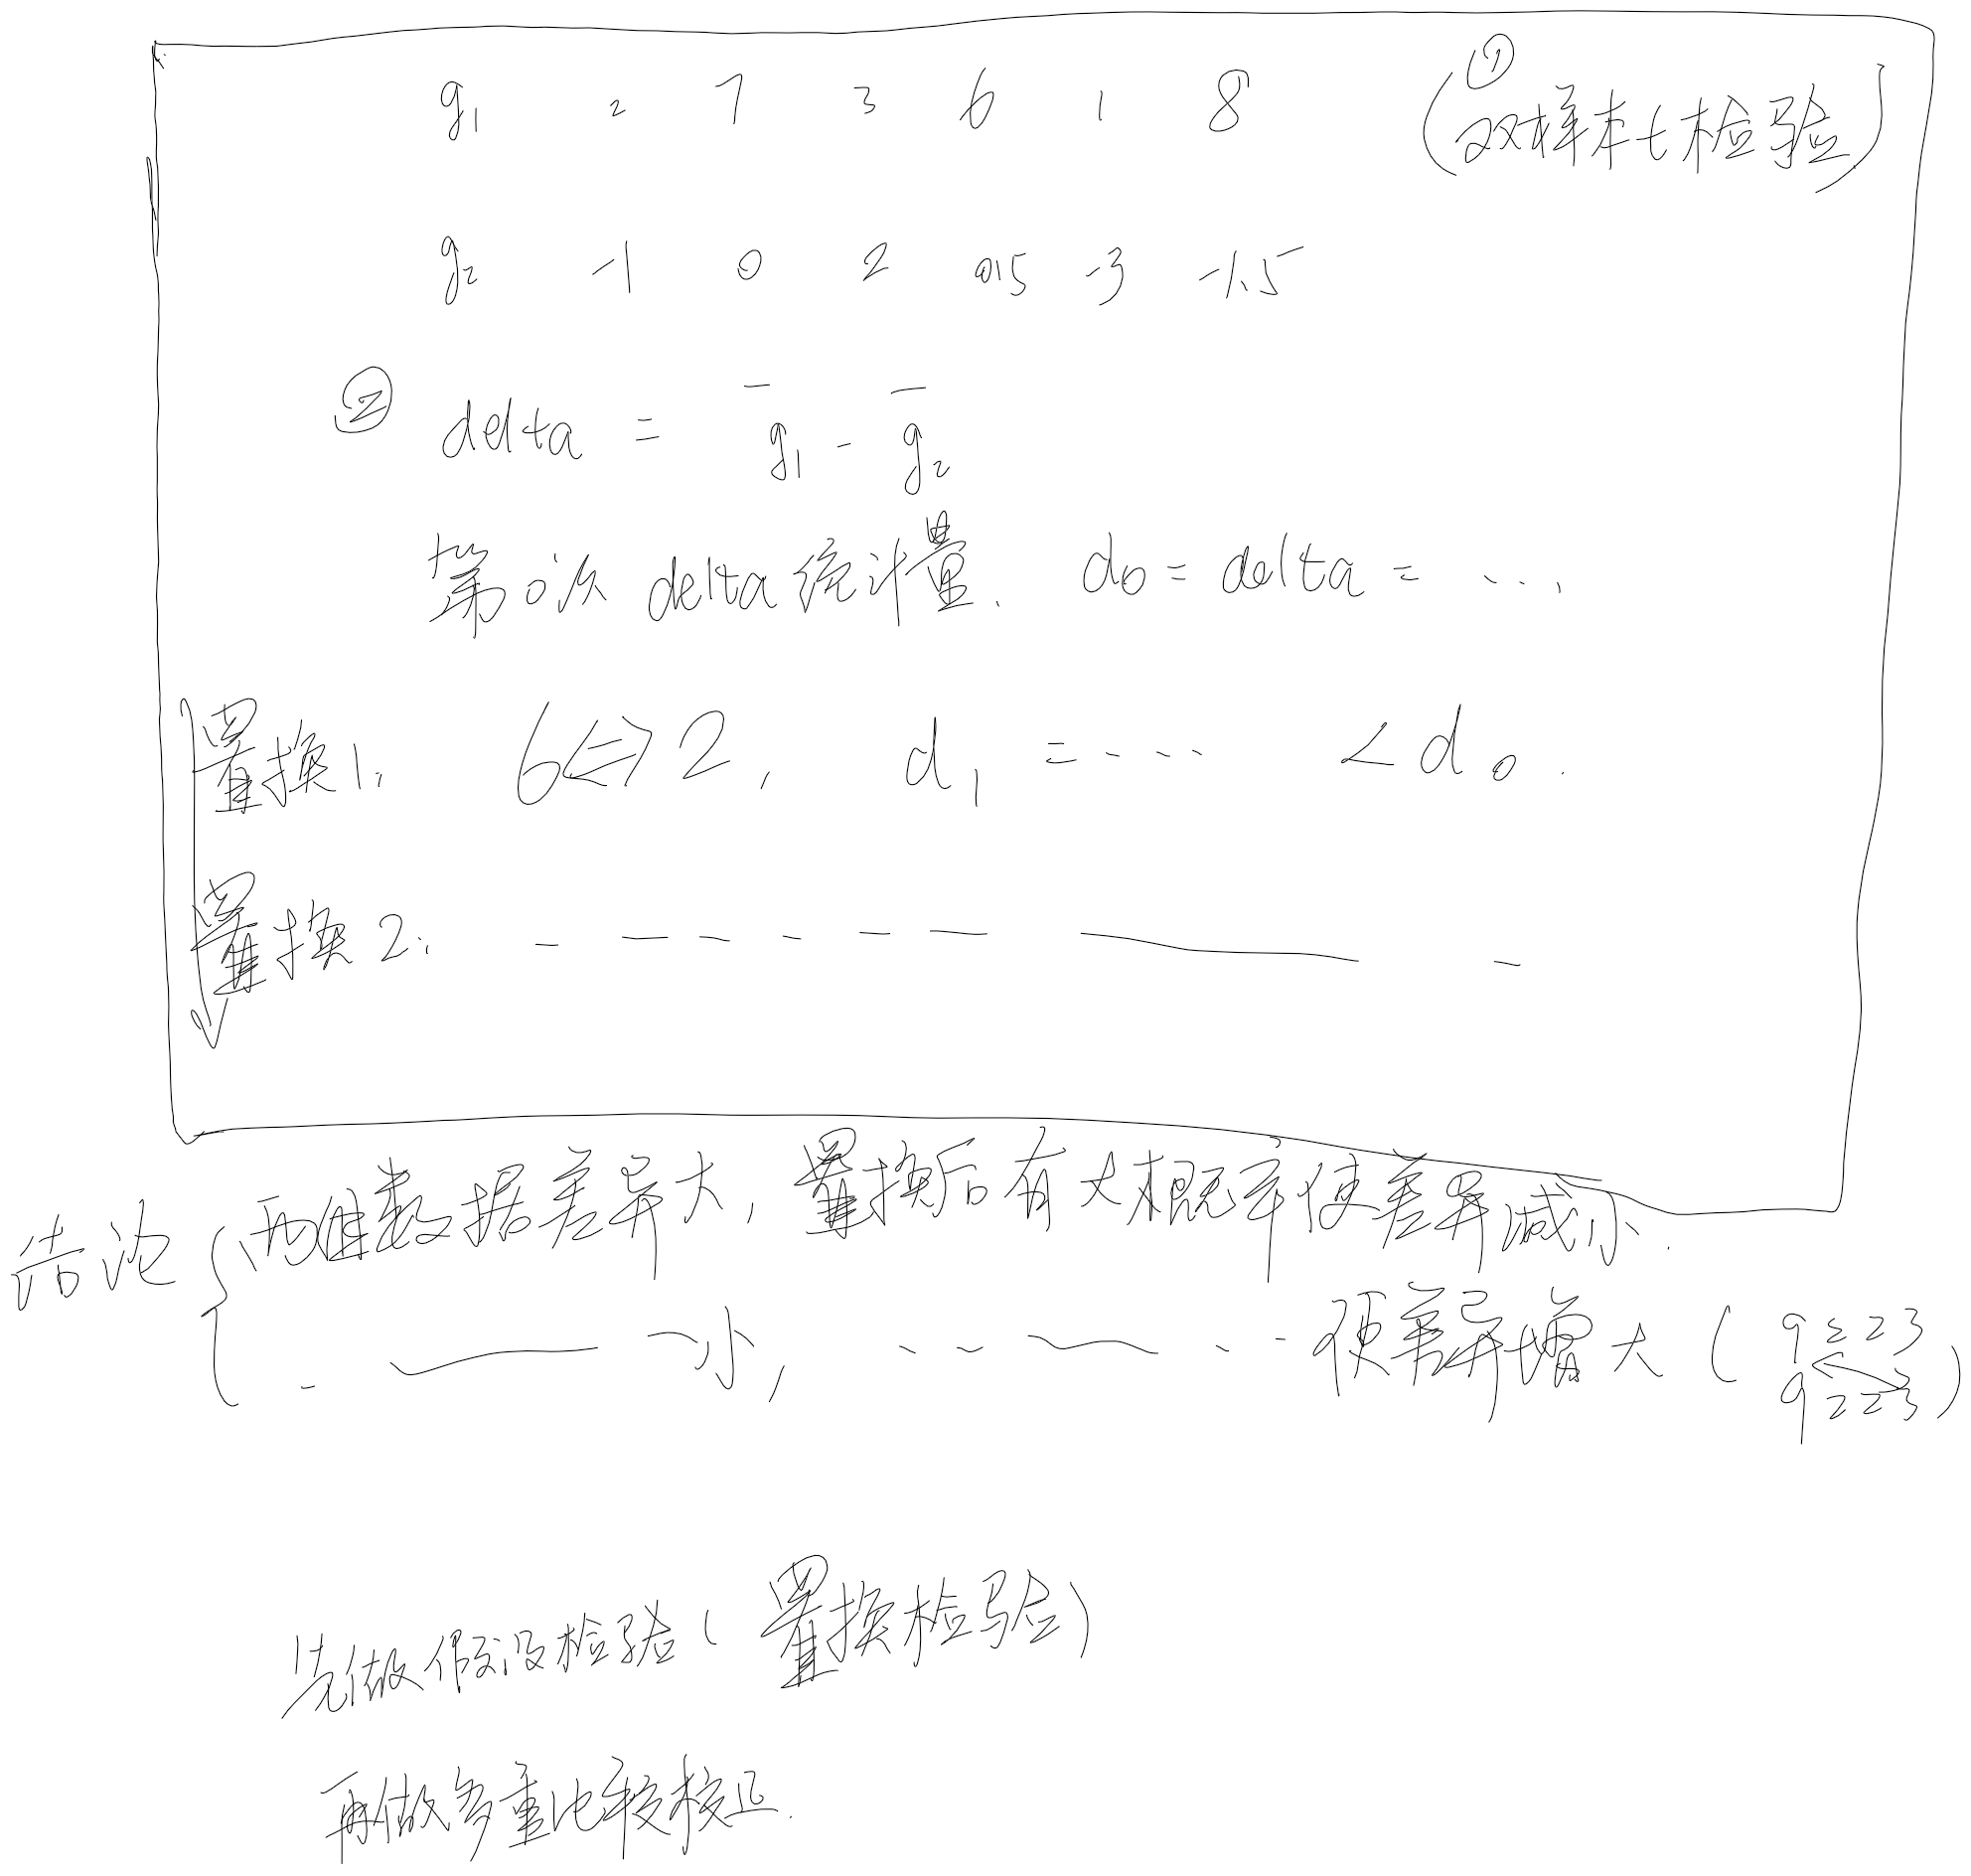 g1 2 7 3 6 1 8 (① 双样本t检验)
g2 -1 0 2 0.5 -3 -1.5
② delta = g̅1 - g̅2
第0次 delta 统计量. d0 = delta = ....
置换1: 6 <=> 2, d1 = .... < d0.
置换2:
结论 { 两组数据差异大, 置换后有大概率使差异减小.
小, 使差异增大 (
先做假设检验(置换检验)
再做多重比较校正.